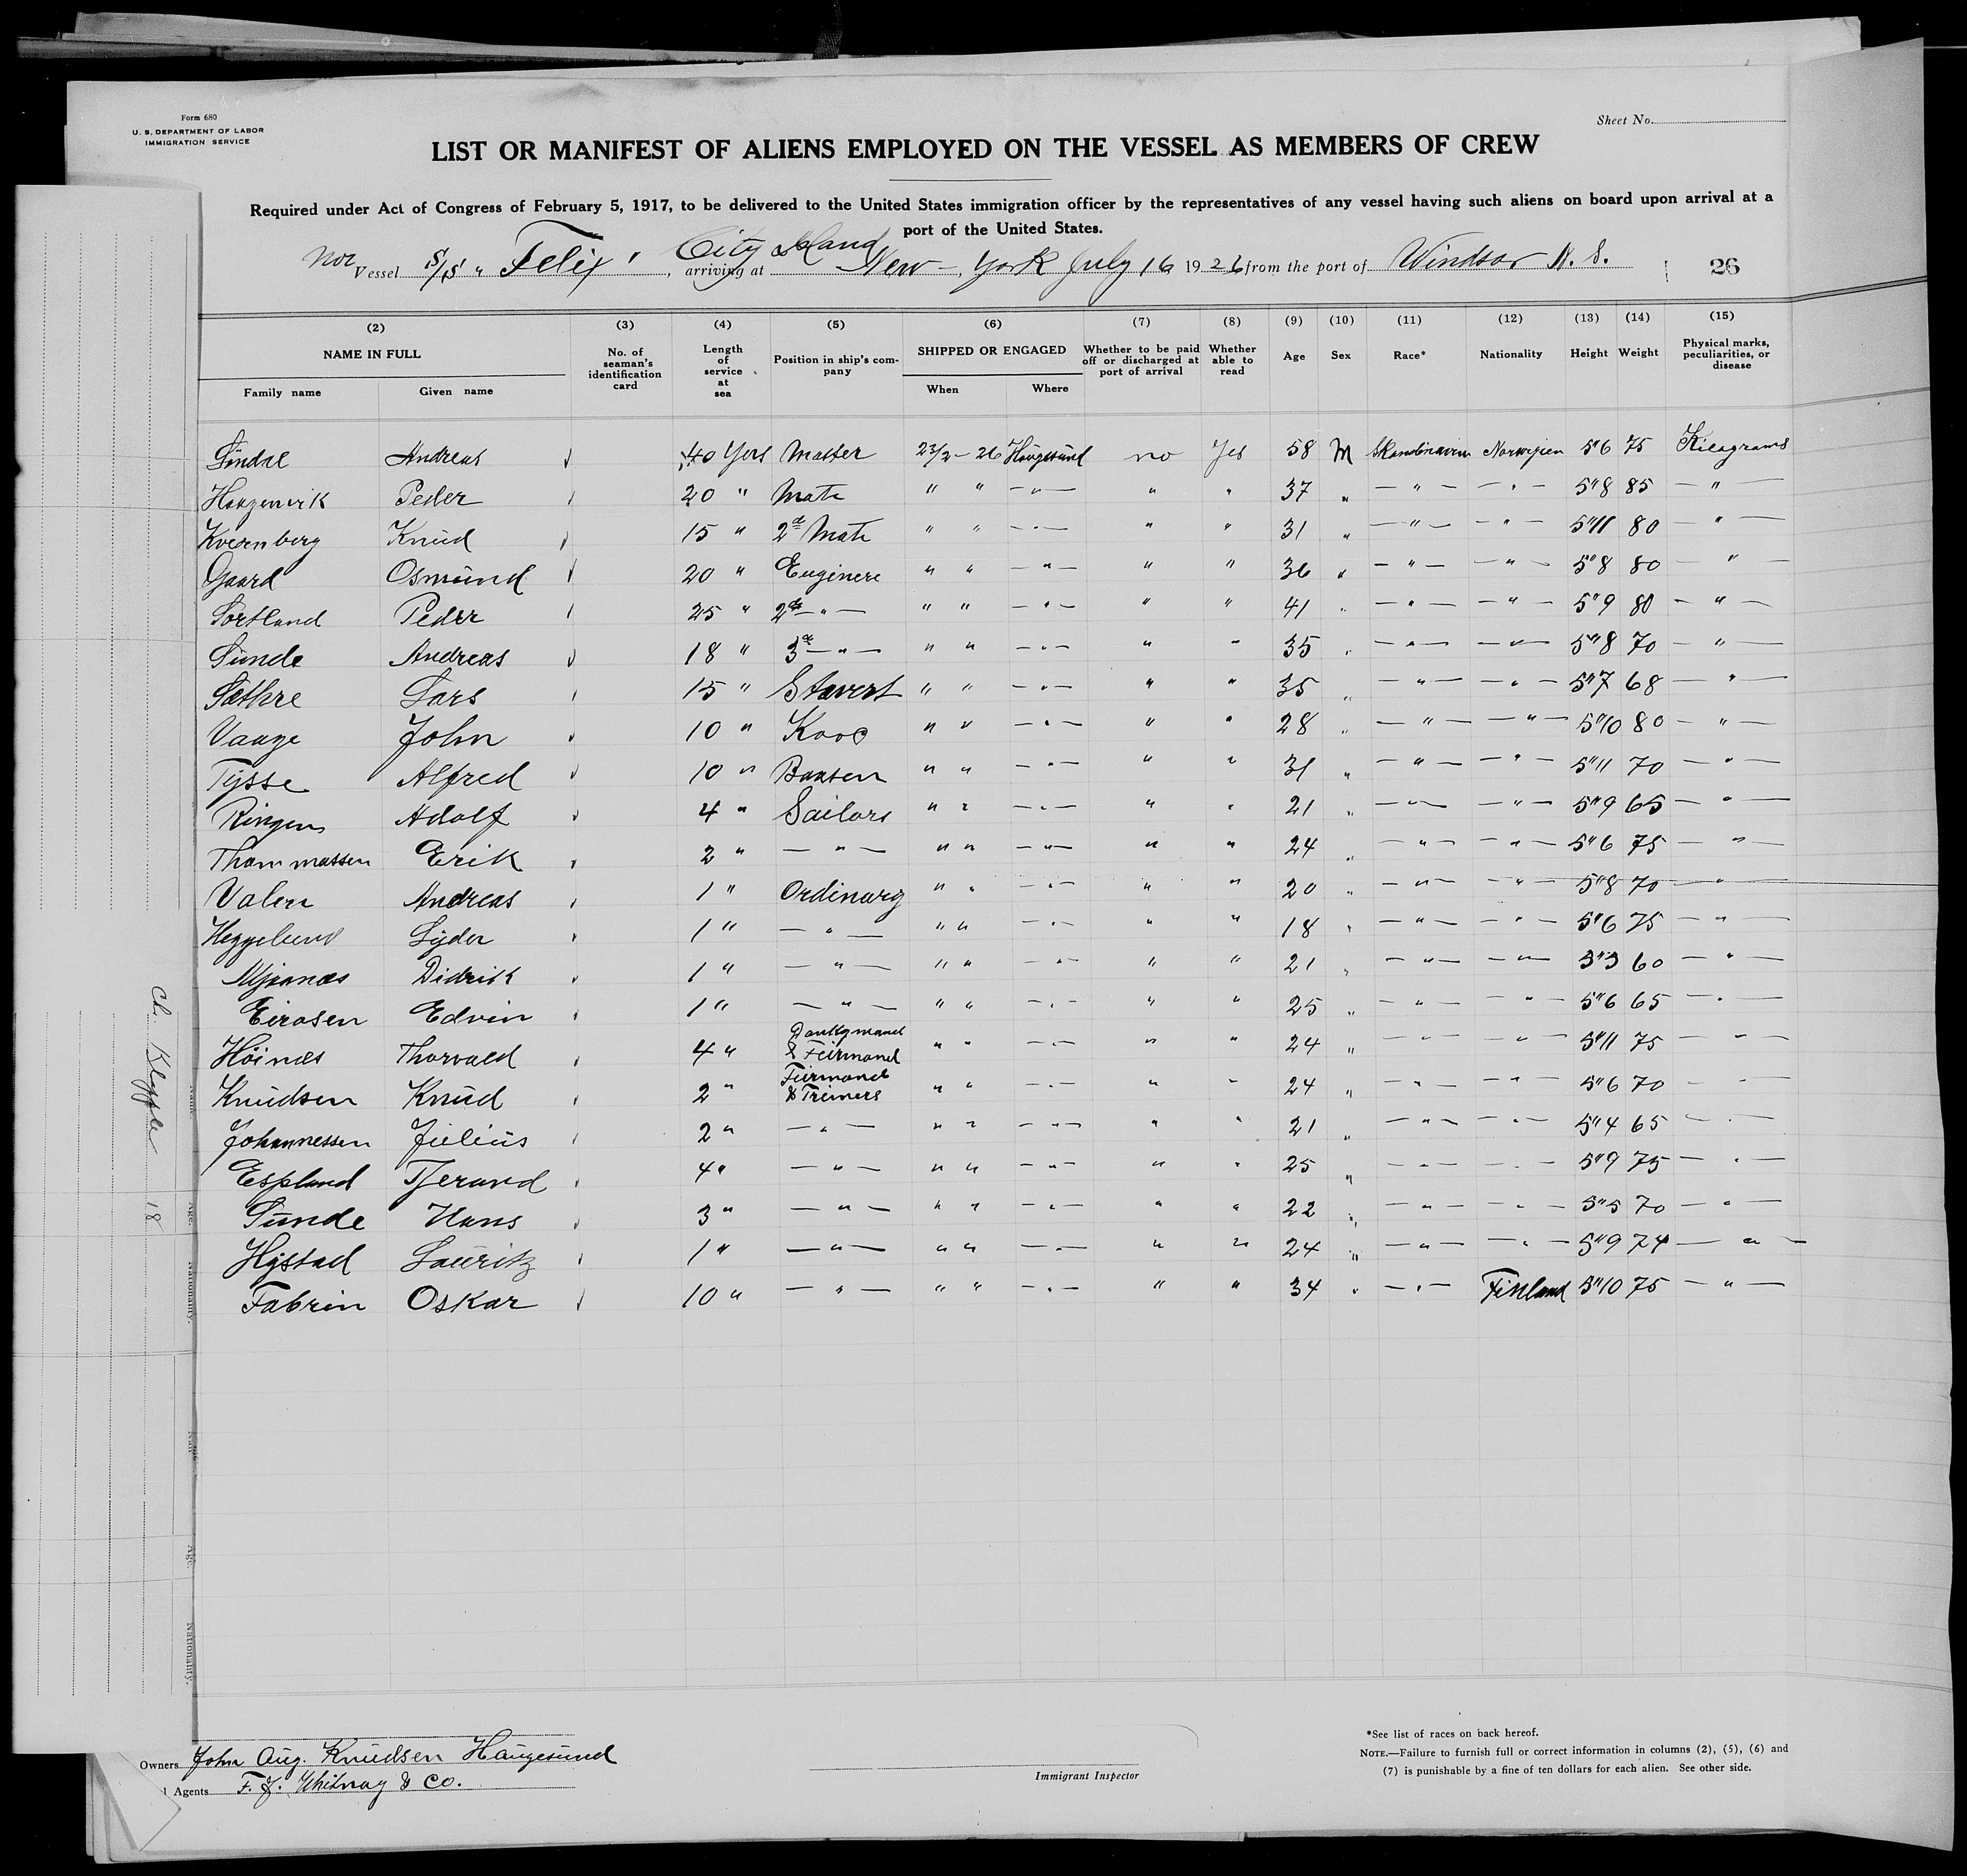 Form 680
U. S. DEPARTMENT OF LABOR
IMMIGRATION SERVICE
Sheet No.
LIST OR MANIFEST OF ALIENS EMPLOYED ON THE VESSEL AS MEMBERS OF CREW
Required under Act of Congress of February 5, 1917, to be delivered to the United States immigration officer by the representatives of any vessel having such aliens on board upon arrival at a
port of the United States.
Nor Vessel S/S " Felix ", arriving at City Island New-York July 16 1926 from the port of Windsor N. S. 26
(2) (3) (4) (5) (6) (7) (8) (9) (10) (11) (12) (13) (14) (15)
NAME IN FULL No. of seaman's identification card Length of service at sea Position in ship's company SHIPPED OR ENGAGED Whether to be paid off or discharged at port of arrival Whether able to read Age Sex Race* Nationality Height Weight Physical marks, peculiarities, or disease
Family name Given name When Where
Andreas 40 Yers Master 23/2-26 Haugesund no Yes 58 M Skandinavien Norwejien 5"6 75 Kilograms
Peder 20 " Mate " " —"— " " 37 " —"— —"— 5"8 85 —"—
Knud 15 " 2d Mate " " —"— " " 31 " —"— —"— 5"11 80 —"—
Gaard Osmund 20 " Euginere " " —"— " " 36 " —"— —"— 5"8 80 —"—
Sortland Peder 25 " 2d —"— " " —"— " " 41 " —"— —"— 5"9 80 —"—
Sunde Andreas 18 " 3d —"— " " —"— " " 35 " —"— —"— 5"8 70 —"—
Sæthre Lars 15 " Stavert " " —"— " " 35 " —"— —"— 5"7 68 —"—
Vaage John 10 " " " —"— " " 28 " —"— —"— 5"10 80 —"—
Tysse Alfred 10 " Baasen " " —"— " " 31 " —"— —"— 5"11 70 —"—
Ringen Adolf 4 " Sailors " " —"— " " 21 " —"— —"— 5"9 65 —"—
Thommassen Erik 2 " —"— " " —"— " " 24 " —"— —"— 5"6 75 —"—
Valen Andreas 1 " Ordinary " " —"— " " 20 " —"— —"— 5"8 70 —"—
Heggelund Lyder 1 " —"— " " —"— " " 18 " —"— —"— 5"6 75 —"—
Mjaanes Didrik 1 " —"— " " —"— " " 21 " —"— —"— 5"3 60 —"—
Eirosen Edvin 1 " —"— " " —"— " " 25 " —"— —"— 5"6 65 —"—
Höines Thorvald 4 " Donkymand & Feirmand " " —"— " " 24 " —"— —"— 5"11 75 —"—
Knudsen Knud 2 " Feirmand & Treimers " " —"— " " 24 " —"— —"— 5"6 70 —"—
Johannessen Julius 2 " —"— " " —"— " " 21 " —"— —"— 5"4 65 —"—
Espland Tjerand 4 " —"— " " —"— " " 25 " —"— —"— 5"9 75 —"—
Sunde Hans 3 " —"— " " —"— " " 22 " —"— —"— 5"5 70 —"—
Hystad Lauritz 1 " —"— " " —"— " " 24 " —"— —"— 5"9 74 —"—
Fabrin Oskar 10 " —"— " " —"— " " 34 " —"— Finland 5"10 75 —"—
Ch. 18
Age.
Nationality.
Age.
Nationality.
Owners John Aug. Knudsen Haugesund
Agents F. J. Whitnay & Co.
Immigrant Inspector
*See list of races on back hereof.
NOTE.—Failure to furnish full or correct information in columns (2), (5), (6) and
(7) is punishable by a fine of ten dollars for each alien. See other side.